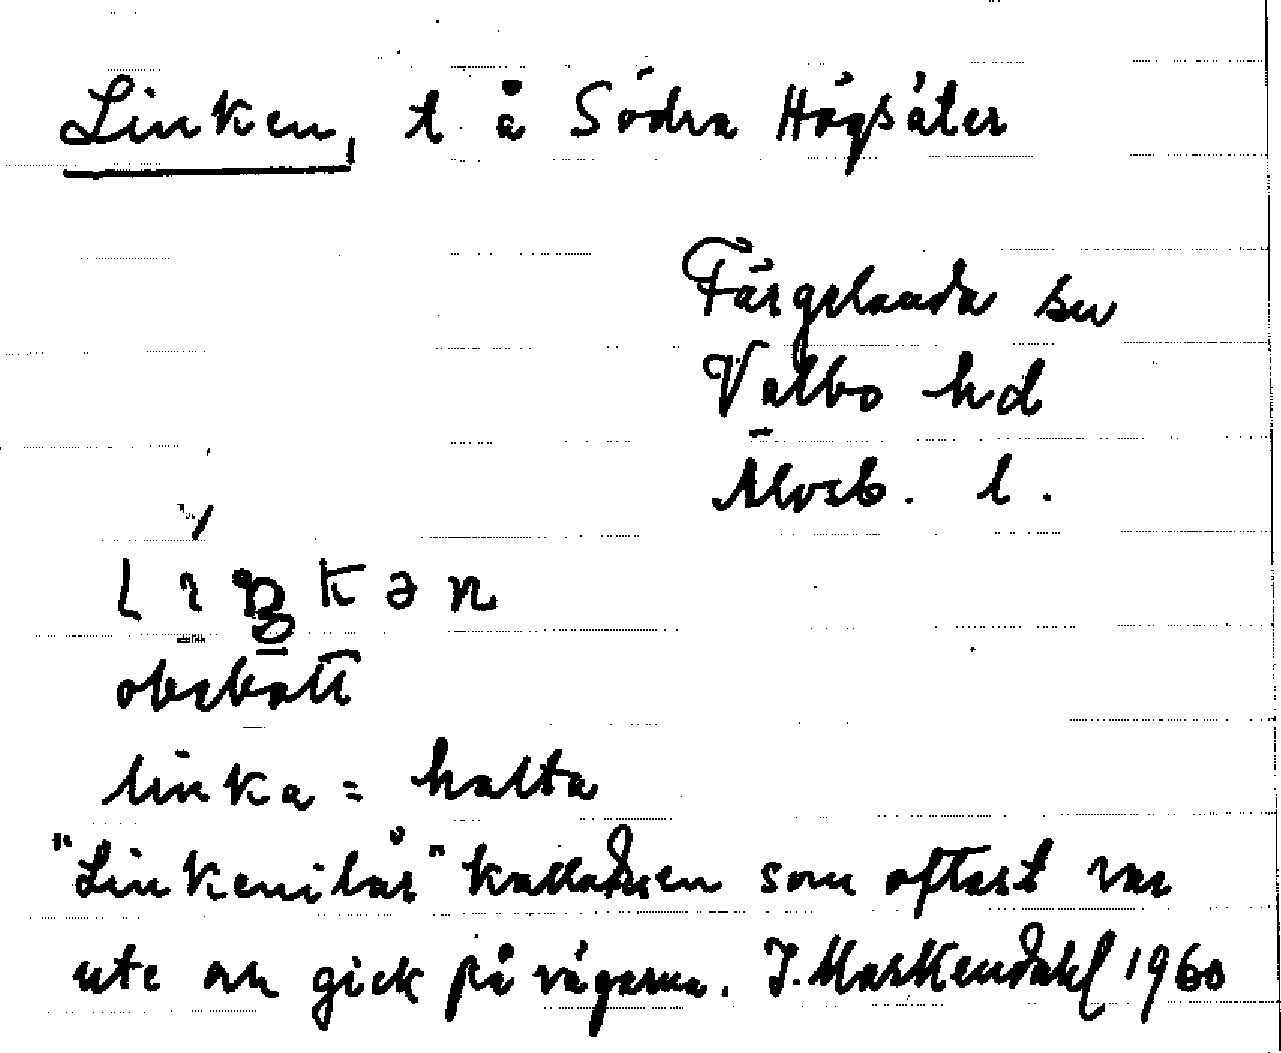 Linken, t å Södra Högsäter
Färgelanda sn
Valbo hd
Älvsb. l.
lıŋkən
obebott
linka = halta
"Linkenibår" kallades en som oftast var
ute och gick på vägarna. J. Markendahl 1960